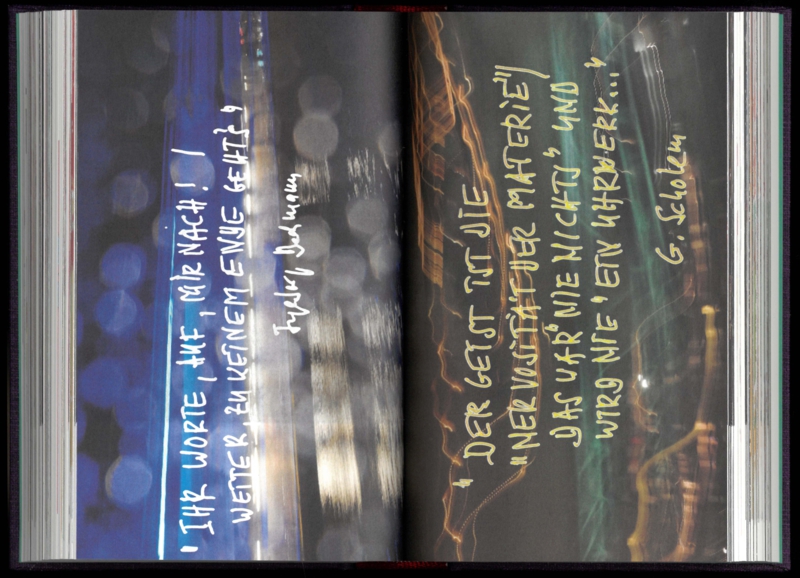 "IHR WORTE, AUF, MIR NACH! /
WEITER, ZU KEINEM ENDE GEHT'S"
"DER GEIST IST DIE
"NERVOSITÄT DER MATERIE"/
DAS WAR "NIE NICHTS" UND
WIRD NIE "EIN UHRWERK..."
G. Scholem